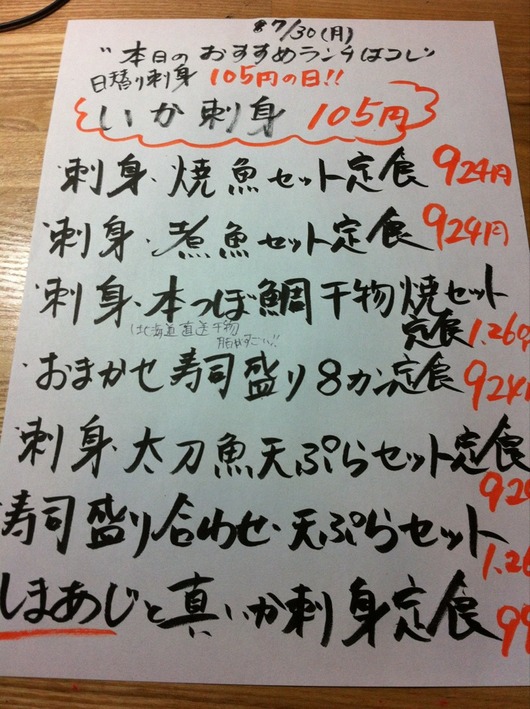 7/30(月)
"本日のおすすめランチはコレ"
日替り刺身 105円の日!!
いか刺身 105円
刺身・焼魚セット定食 924円
刺身・煮魚セット定食 924円
刺身・本つぼ鯛干物焼セット
北海道直送干物
脂がすごい!!
定食 1.26
おまかせ寿司盛り8カン定食 924
刺身・太刀魚天ぷらセット定食
92
寿司盛り合わせ・天ぷらセット
1.26
しまあじと真いか刺身定食 99